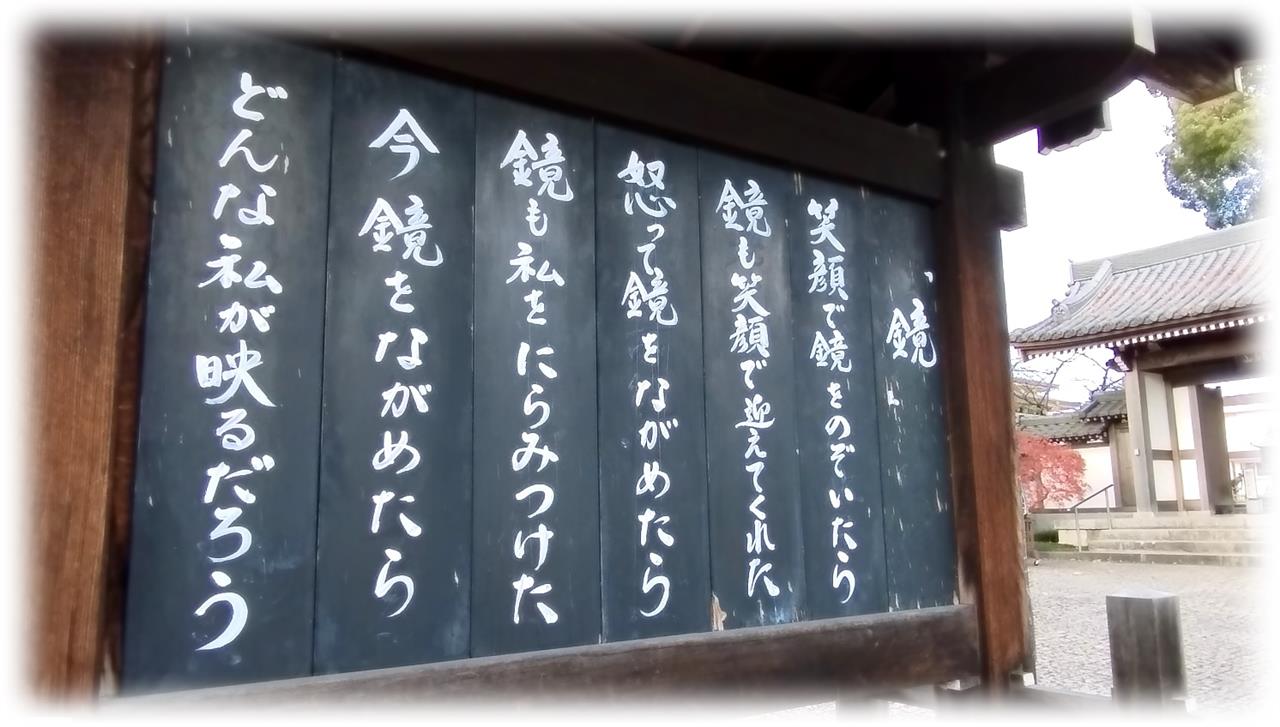 「鏡」
笑顔で鏡をのぞいたら
鏡も笑顔で迎えてくれた
怒って鏡をながめたら
鏡も私をにらみつけた
今鏡をながめたら
どんな私が映るだろう